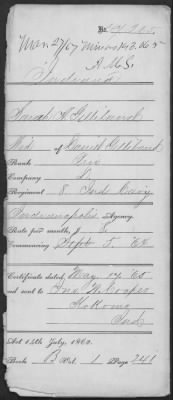 No.
Mar 27/67 Minors 143.065
Indiana
Sarah A. Gilliland
Wid of Daniel Gilliland
Rank Priv
Company L,
Regiment 8 Ind Cavy
Indianapolis Agency.
Rate per month, $ 8
Commencing Sept 5, 64
Certificate dated, May 17 65
and sent to Cooper
Kokomo
Ind
Act 14th July, 1862.
Book B Vol. 1 Page 241